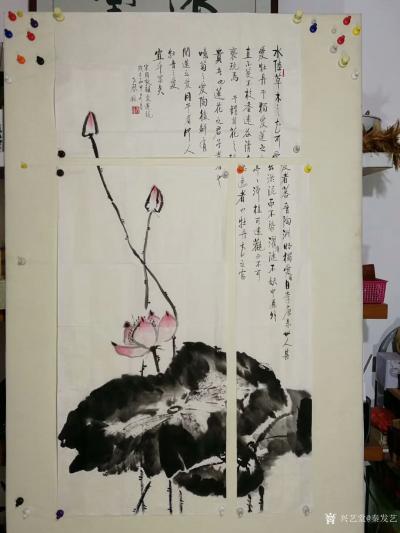 水陸草木之花可爱
者蕃晋陶渊明独爱自李唐来世人甚
爱牡丹予独爱莲之
出淤泥而不染濯涟不妖中通外
直不蔓不枝香远益清
亭亭净植可远观而不可
亵玩焉予谓菊花之
隐逸者也牡丹花之富
贵者也莲花之君子者也
噫菊之爱陶後鲜有
闻莲之爱同予者何人
牡丹之爱
宜乎众矣
宋周敦颐爱莲说
兴艺堂@秦发艺